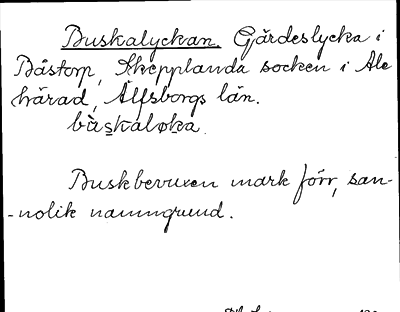 Buskalyckan. Gärdeslycka i
Båstorp, Skepplanda socken i Ale
härad, Älfsborgs län.
bàskaløka.
Buskbevuxen mark förr, san-
-nolik namngrund.